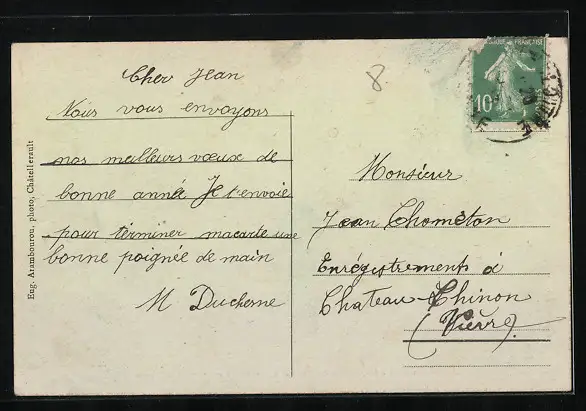 Cher Jean
Nous vous envoyons
nos meilleurs vœux de
bonne année Je t'envoie
pour terminer ma carte une
bonne poignée de main
M Duchesne
8
RÉPUBLIQUE FRANÇAISE
10
Monsieur
Jean Chometon
Enrégistrements á
Chateau-Chinon
(Nièvre)
Eug. Arambourou, photo, Châtellerault